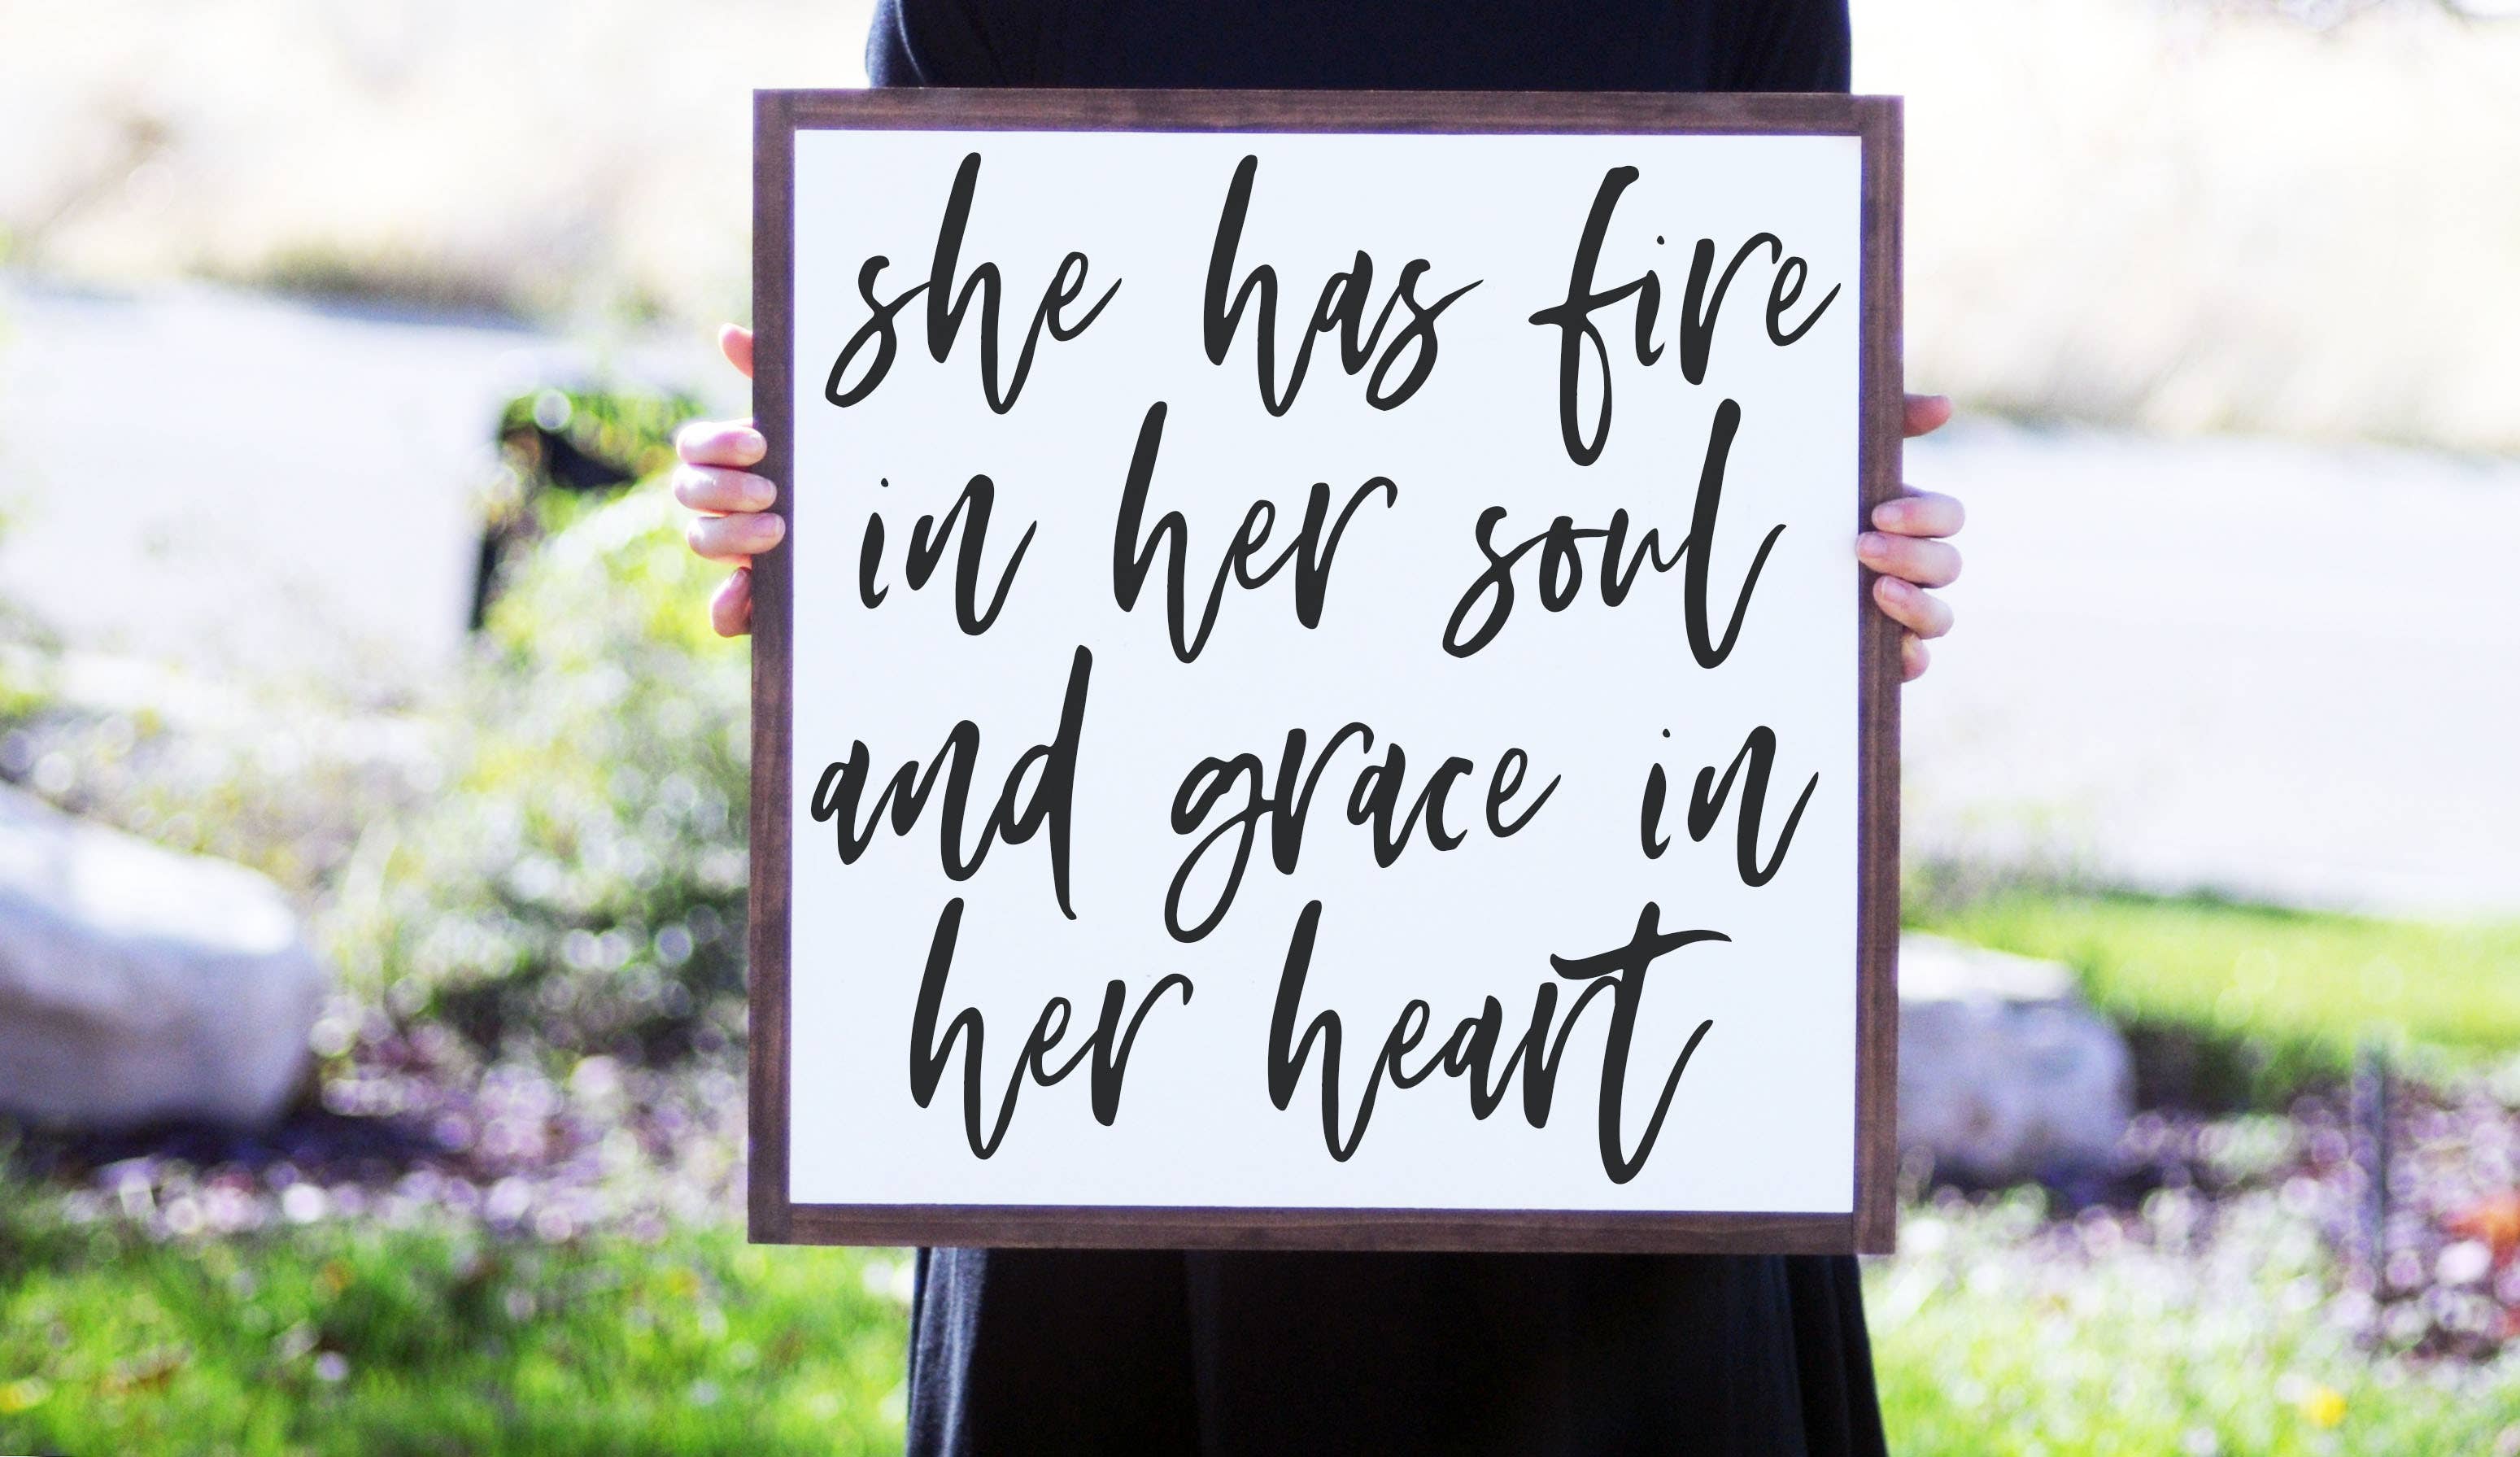 she has fire
in her soul
and grace in
her heart